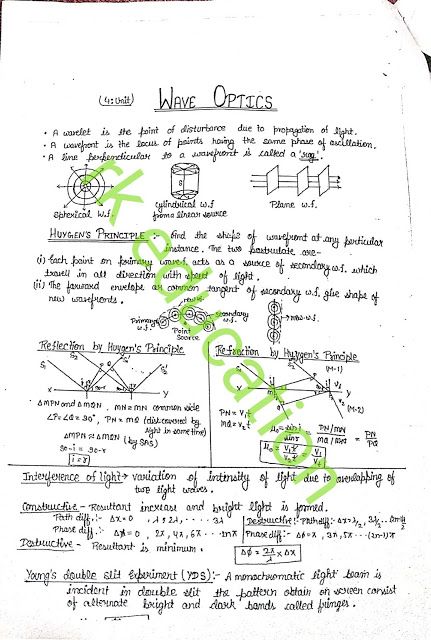 (4: Unit) WAVE OPTICS
• A wavelet is the point of disturbance due to propagation of light.
• A wavefront is the locus of points having the same phase of oscillation.
• A line perpendicular to a wavefront is called a 'ray'.
Spherical W.f. cylindrical w.f Plane w.f.
from a linear source
HUYGEN'S PRINCIPLE :- find the shape of wavefront at any perticular
instance. The two postrulate are-
(i) Each point on primary wavef. acts as a source of secondary w.f. which
travell in all direction with speed of light.
(ii) The forward envelope as common tangent of secondary w.f. give shape of
new wavefronts.
new w.f.
Primary w.f.
Secondary w.f.
Point Source
Reflection by Huygen's Principle
Refraction by Huygen's Principle
(M-1)
(M-2)
X Y
ΔMPN and ΔMQN, MN = MN common side
∠P=∠Q=90°, PN = MQ (dist. covered by
light in same time)
ΔMPN ≅ ΔMQN (by SAS)
90-i = 90-r
i = r
PN = V₁t
MQ = V₂t
sin i / sin r = PN/MN / MQ/MN = PN
Interference of light → variation of intensity of light due to overlapping of
two light waves.
Constructive - Resultant increase and bright light is formed.
Path diff.:- Δx = 0
Phase diff.:- Δϕ = 0, 2π, 4π, 6π
Destructive:- Path diff:- Δx = λ/2
Phase diff:- Δϕ = π, 3π, 5π ... (2n-1)π
Destructive - Resultant is minimum.
Δϕ = 2π/λ × Δx
Young's double slit Experiment (YDS):- A monochromatic light beam is
incident in double slit the pattern obtain on screen consist
of alternate bright and dark bands called fringes.
rk education